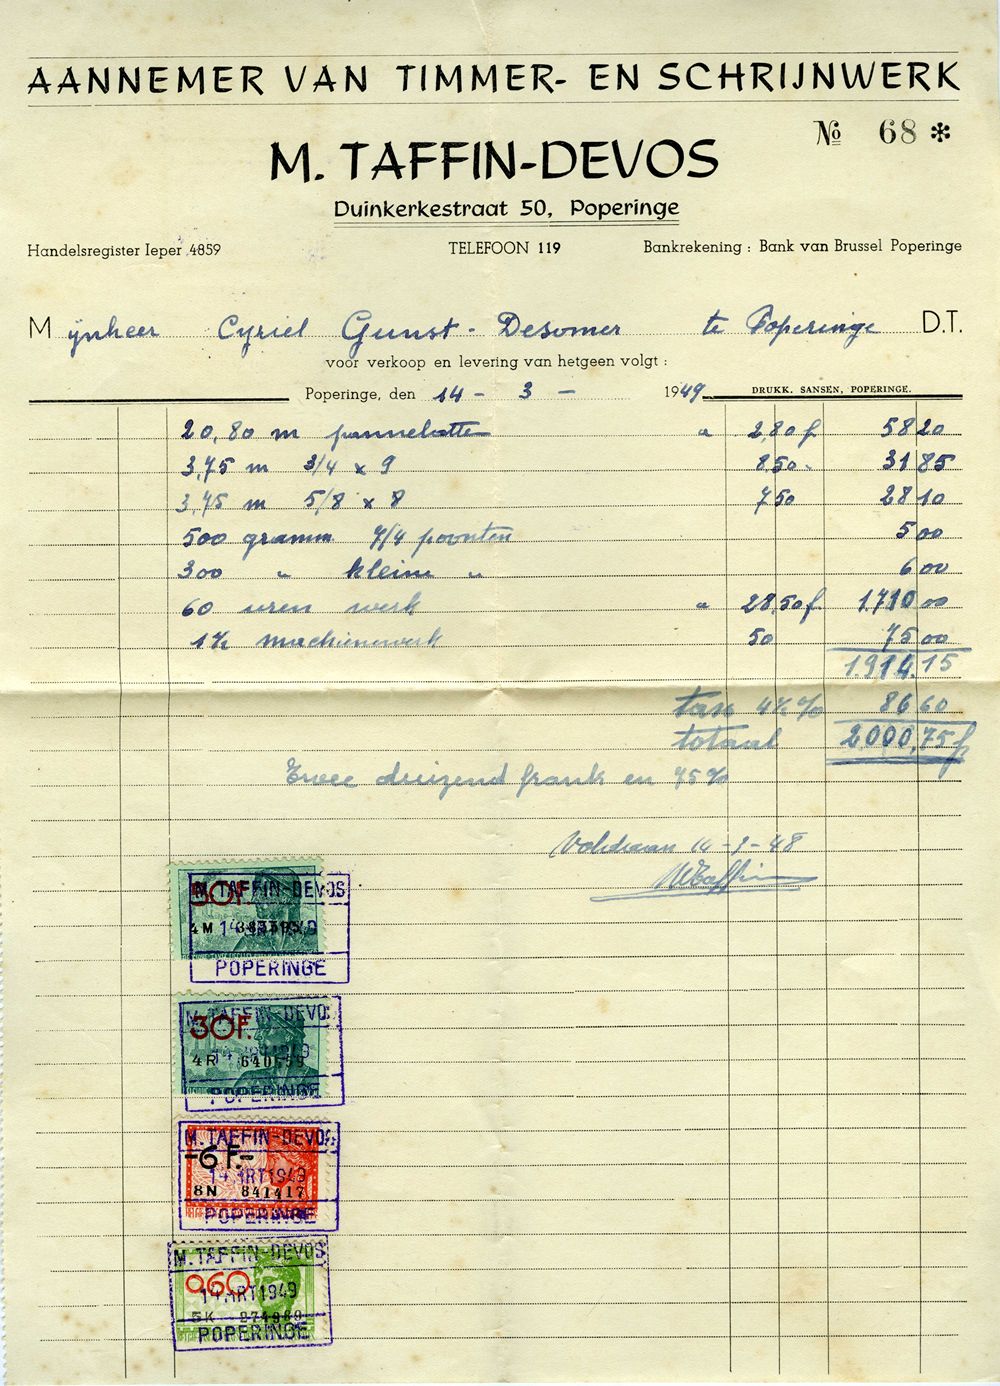 AANNEMER VAN TIMMER- EN SCHRIJNWERK
№ 68 *
M. TAFFIN-DEVOS
Duinkerkestraat 50, Poperinge
Handelsregister Ieper 4859 TELEFOON 119 Bankrekening : Bank van Brussel Poperinge
Mijnheer Cyriel Gunst - Desomer te Poperinge D.T.
voor verkoop en levering van hetgeen volgt :
Poperinge, den 14 - 3 - 1949 DRUKK. SANSEN, POPERINGE.
20,80 m pannelatten a 2,80 f 58 20
3,75 m 3/4 x 9 8,50 31 85
3,75 m 5/8 x 8 7 50 28 10
500 gramm 7/4 poonten 5 00
300 " kleine " 6 00
60 uren werk a 28,50 f 1.710 00
1½ machienewerk 50 75 00
1.914.15
tax 4½% 86 60
totaal 2000,75 f
Twee duizend frank en 75%
Voldaan 14-3-48
M Taffin
30F.
M. TAFFIN-DEVOS
4M
POPERINGE
30F.
M. TAFFIN-DEVOS
4R
POPERINGE
M. TAFFIN-DEVOS
-6F.-
14 MRT 1949
8N 841417
POPERINGE
M. TAFFIN-DEVOS
0,60
14 MRT 1949
5K
POPERINGE